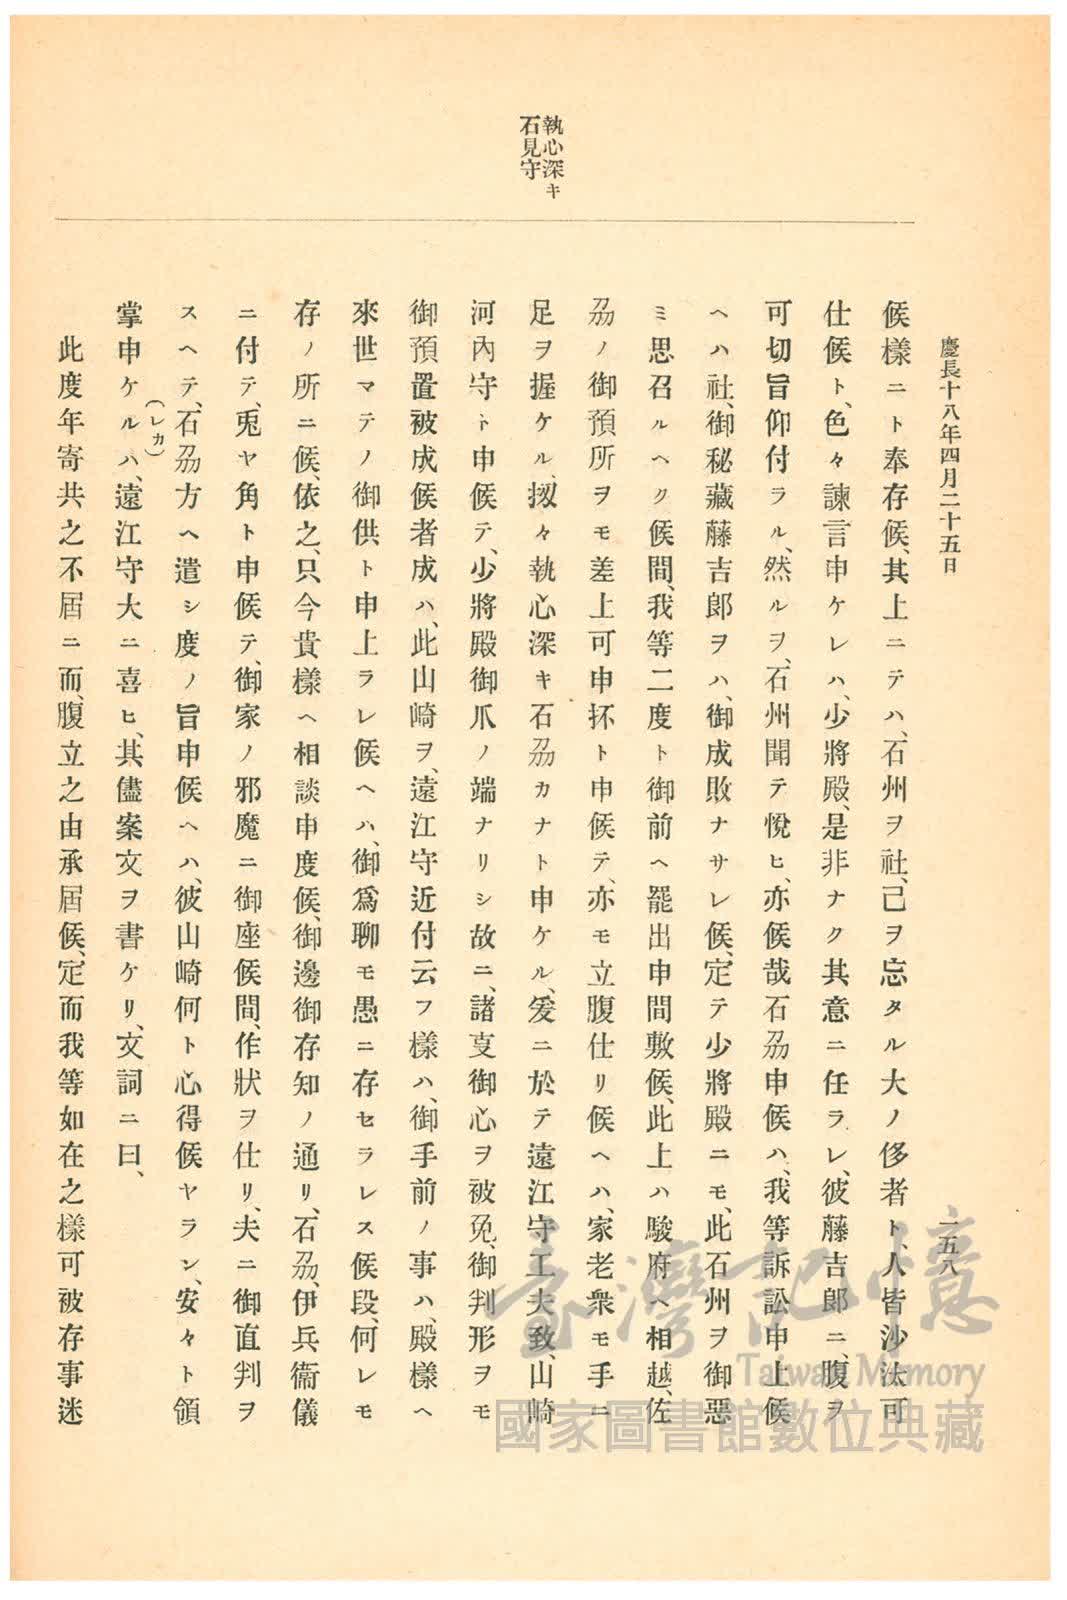 慶長十八年四月二十五日
一五八
執心深キ
石見守
候樣ニト奉存候、其上ニテハ、石州ヲ社、己ヲ忘タル大ノ侈者ト、人皆沙汰可
仕候ト、色々諫言申ケレハ、少將殿、是非ナク其意ニ任ラレ、彼藤吉郎ニ、腹ヲ
可切旨仰付ラル、然ルヲ、石州聞テ悅ヒ、亦候哉石刕申候ハ、我等訴訟申上候
ヘハ社、御秘藏藤吉郎ヲハ、御成敗ナサレ候、定テ少將殿ニモ、此石州ヲ御惡
ミ思召ルヘク候間、我等二度ト御前ヘ罷出申間敷候、此上ハ駿府ヘ相越、佐
刕ノ御預所ヲモ差上可申抔ト申候テ、亦モ立腹仕リ候ヘハ、家老衆モ手ニ
足ヲ握ケル、扨々執心深キ石刕カナト申ケル、爰ニ於テ遠江守工夫致、山崎
河內守ト申候テ、少將殿御爪ノ端ナリシ故ニ、諸叓御心ヲ被免、御判形ヲモ
御預置被成候者成ハ、此山崎ヲ、遠江守近付云フ樣ハ、御手前ノ事ハ、殿樣ヘ
來世マテノ御供ト申上ラレ候ヘハ、御爲聊モ愚ニ存セラレス候段、何レモ
存ノ所ニ候、依之、只今貴樣ヘ相談申度候、御邊御存知ノ通リ、石刕、伊兵衞儀
ニ付テ、兎ヤ角ト申候テ、御家ノ邪魔ニ御座候間、作狀ヲ仕リ、夫ニ御直判ヲ
スヘテ、石刕方ヘ遣シ度ノ旨申候ヘハ、彼山崎何ト心得候ヤラン、安々ト領
(レカ)
掌申ケルハ、遠江守大ニ喜ヒ、其儘案文ヲ書ケリ、文詞ニ曰、
此度年寄共之不屆ニ而、腹立之由承屆候、定而我等如在之樣可被存事迷
臺灣記憶
Taiwan Memory
國家圖書館數位典藏